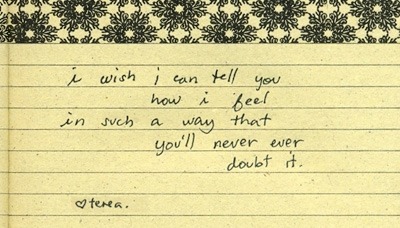 i wish i can tell you
how i feel
in such a way that
you'll never ever
doubt it.
♡terea.